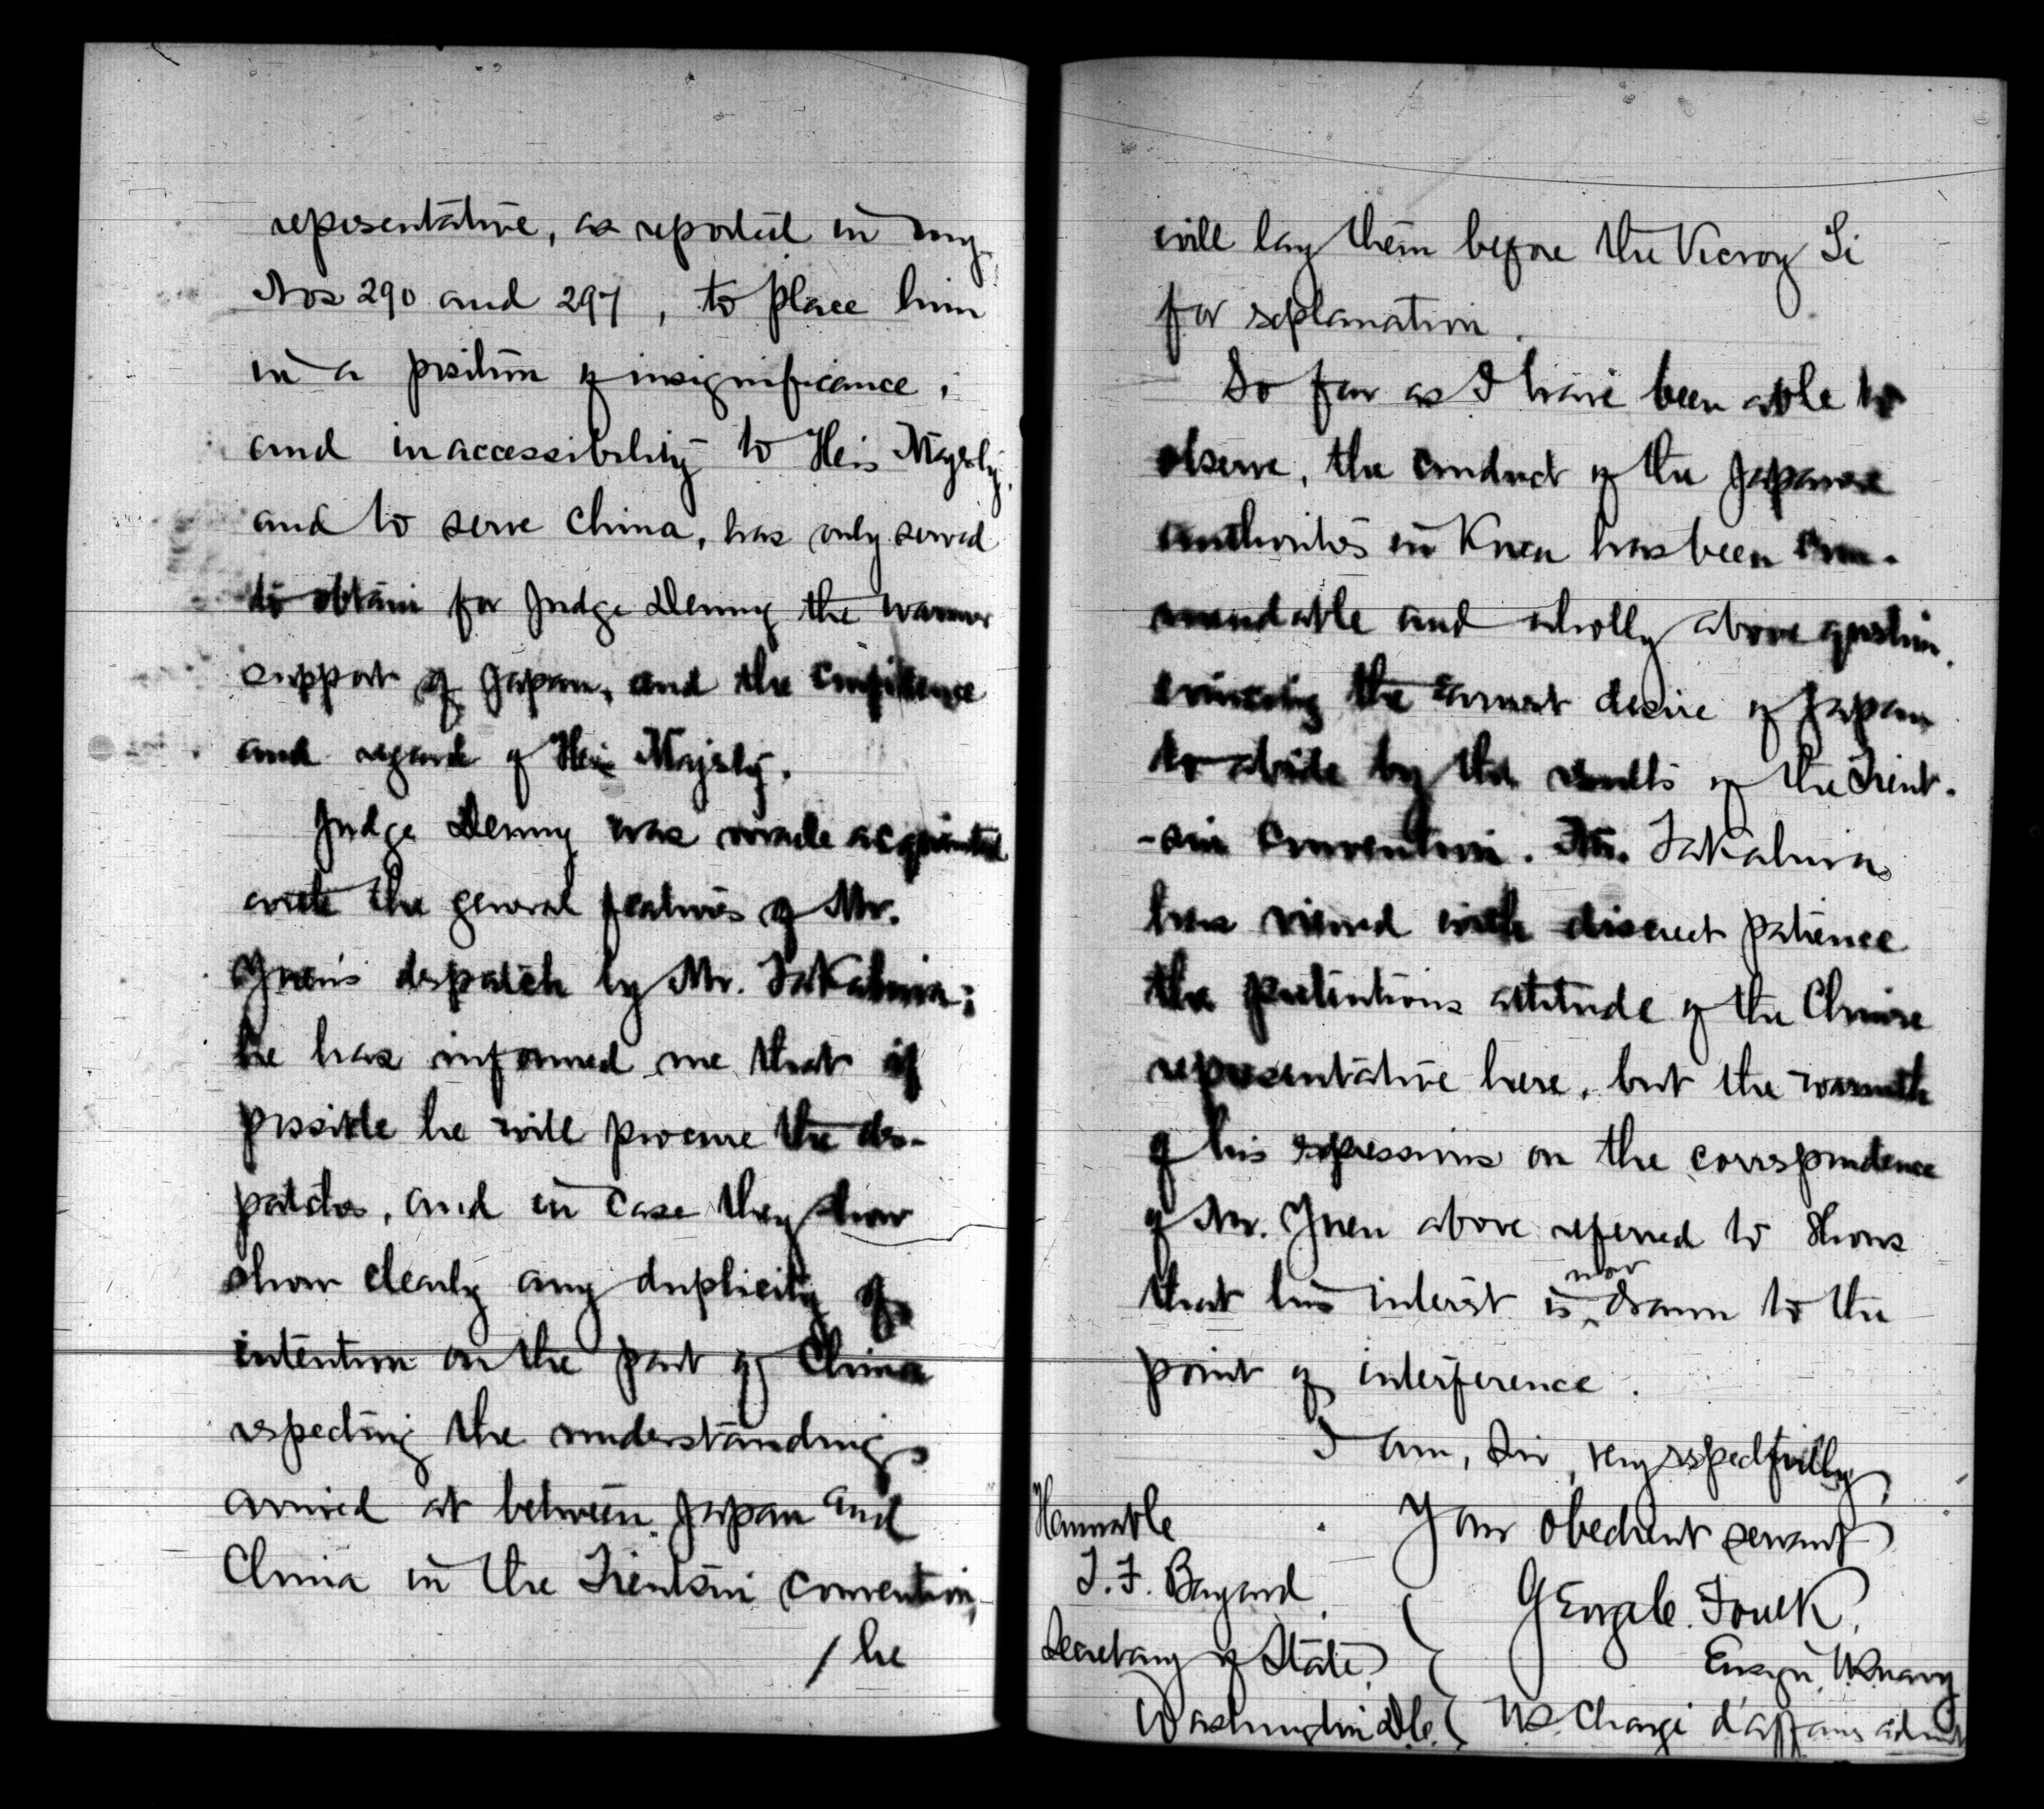 representative, as reported in my
Nos 290 and 297, to place him
in a position of insignificance,
and inaccessibility to His Majesty,
and to serve China, has only served
to obtain for Judge Denny the warmer
support of Japan, and the confidence
and regard of His Majesty.
Judge Denny was made acquainted
with the general features of Mr.
Yuen's despatch by Mr. Takahira;
he has informed me that if
possible he will procure the des-
patches, and in case they show
show clearly any duplicity of
intention on the part of China
respecting the understanding
arrived at between Japan and
China in the Tientsin convention,
/ he
will lay them before the Viceroy Li
for explanation.
So far as I have been able to
observe, the conduct of the Japanese
authorities in Korea has been com-
mendable and wholly above question,
evincing the earnest desire of Japan
to abide by the results of the Tient-
-sin convention. Mr. Takahira
has viewed with discreet patience
the pretentious attitude of the Chinese
representative here, but the warmth
of his expressions on the correspondence
of Mr. Yuen above referred to shows
that his interest is now drawn to the
point of interference.
I am, Sir, very respectfully
Your obedient servant
George C. Foulk,
Ensign, US Navy
US. Chargé d'affaires ad int
Honorable
T. F. Bayard,
Secretary of State,
Washington D.C.